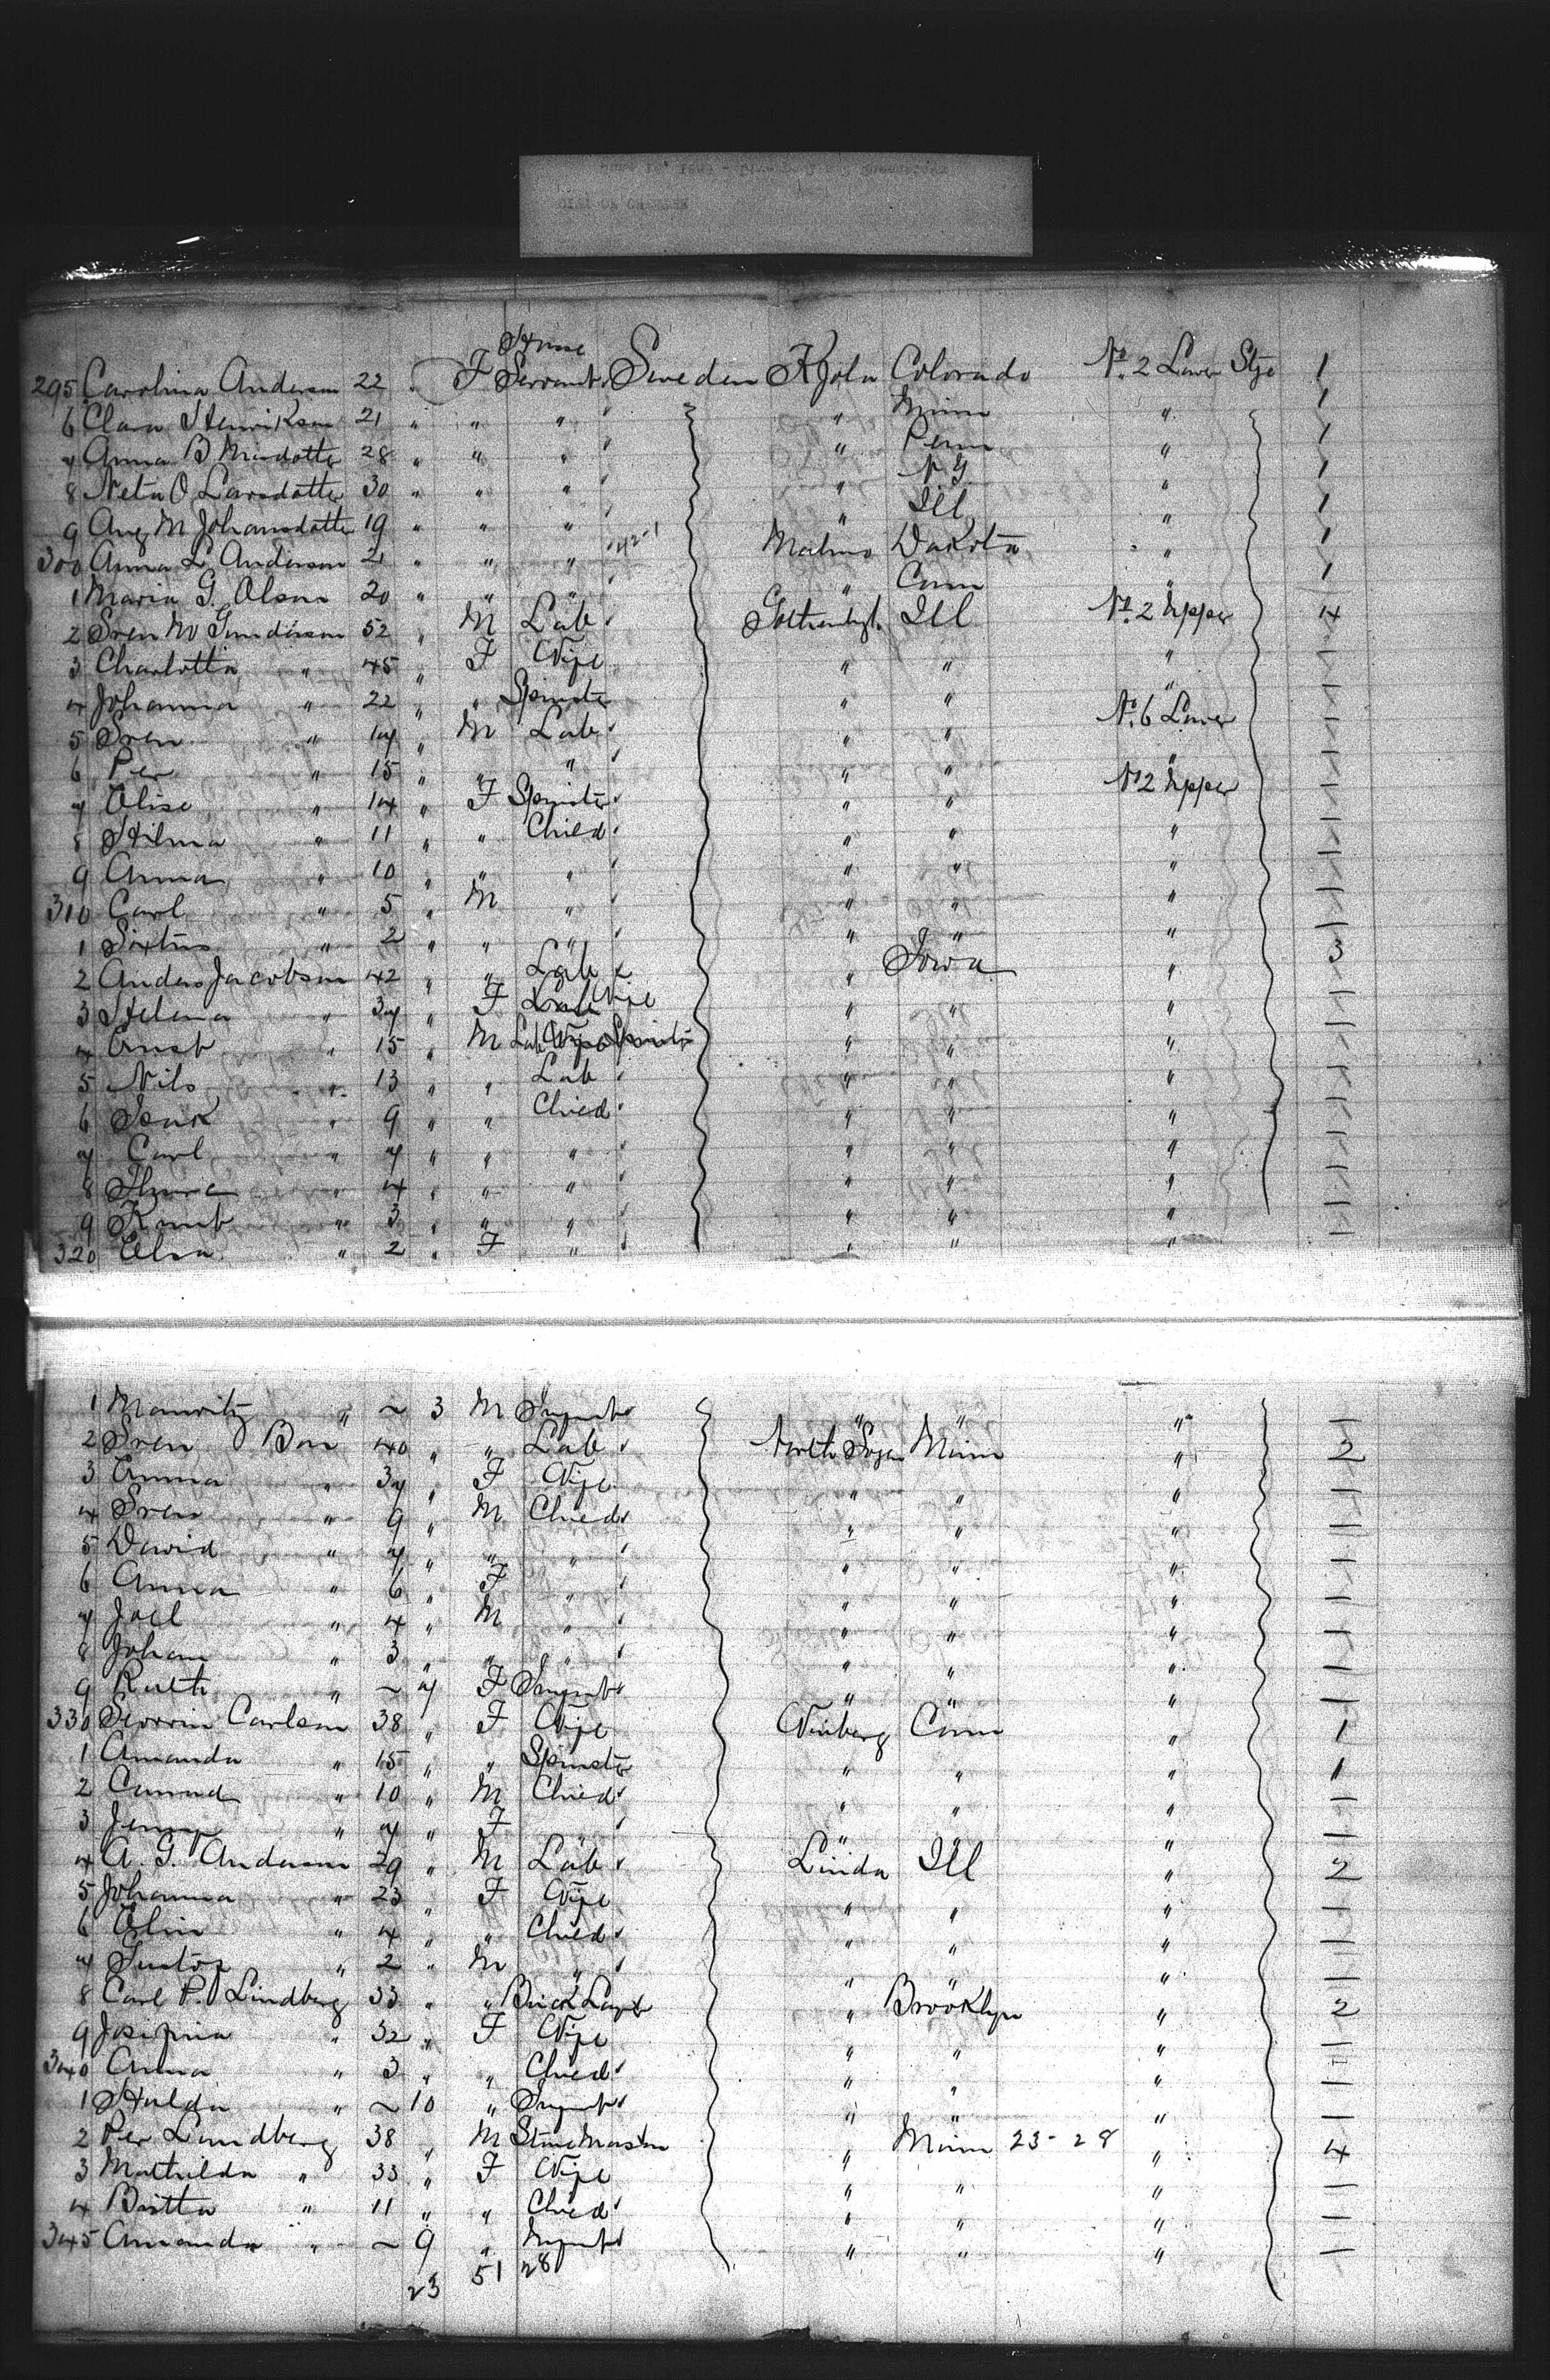 House
295 Carolina Anderson 22 " F Servant Sweden Kjola Colorado No. 2 Lower Stge 1
6 Clara Henrikson 21 " " " " Minn " 1
7 Anna B Nilsdotter 28 " " " " Penn " 1
8 Neta O Larsdotter 30 " " " " N.Y. " 1
9 Aug M Johansdotter 19 " " " " Ill " 1
300 Anna L Anderson 21 " " " 42-1 Malmo Dakota " 1
1 Maria G. Olson 20 " " " " Conn " 1
2 Sven M Gunderson 52 " M Lab Gothenbg. Ill No. 2 Upper 4
3 Charlotta " 45 " F Wife " " " —
4 Johanna " 22 " " Spinster " " " —
5 Sven " 17 " M Lab " " No. 6 Lower —
6 Per " 15 " " " " " " —
7 Elise " 14 " F Spinster " " No 2 Upper —
8 Hilma " 11 " " Child " " " —
9 Anna " 10 " " " " " " —
310 Carl " 5 " M " " " " —
1 Sixtus " 2 " " " " " " —
2 Anders Jacobson 42 " " Lab " Iowa " 3
3 Helena " 37 " F Lab Wife " " " —
4 Ernst " 15 " M Lab Wife Spinster " " " —
5 Nils " 13 " " Lab " " " —
6 Isak " 9 " " Child " " " —
7 Carl " 7 " " " " " " —
8 Thure " 4 " " " " " " —
9 Knut " 3 " " " " " " —
320 Elsa " 2 " F " " " " —
1 Mauritz " ~ 3 M Infant " " " —
2 Sven Bon 40 " " Lab Minn " 2
3 Emma " 37 " F Wife " " " —
4 Sven " 9 " M Child " " " —
5 David " 7 " " " " " " —
6 Anna " 6 " F " " " " —
7 Joel " 4 " M " " " " —
8 Johan " 3 " " " " " " —
9 Ruth " ~ 7 F Infant " " " —
330 Carlson 38 " F Wife Winberg Conn " 1
1 Amanda " 15 " " Spinster " " " 1
2 Conrad " 10 " M Child " " " —
3 Jenny " 7 " F " " " —
4 A. G. Anderson 29 " M Lab Linda Ill " 2
5 Johanna " 23 " F Wife " " " —
6 Elin " 4 " " Child " " " —
7 Gustaf " 2 " M " " " " —
8 Carl P. Lindberg 33 " " Brick Layer " Brooklyn " 2
9 Josefina " 32 " F Wife " " " —
340 Anna " 3 " " Child " " " —
1 Hulda " ~ 10 " Infant " " " —
2 Per Lundberg 38 " M Stone Mason " Minn 23-28 " 4
3 Mathilda " 33 " F Wife " " " —
4 Britta " 11 " " Child " " " —
345 Amanda " ~ 9 " Infant " " " —
23 51 28